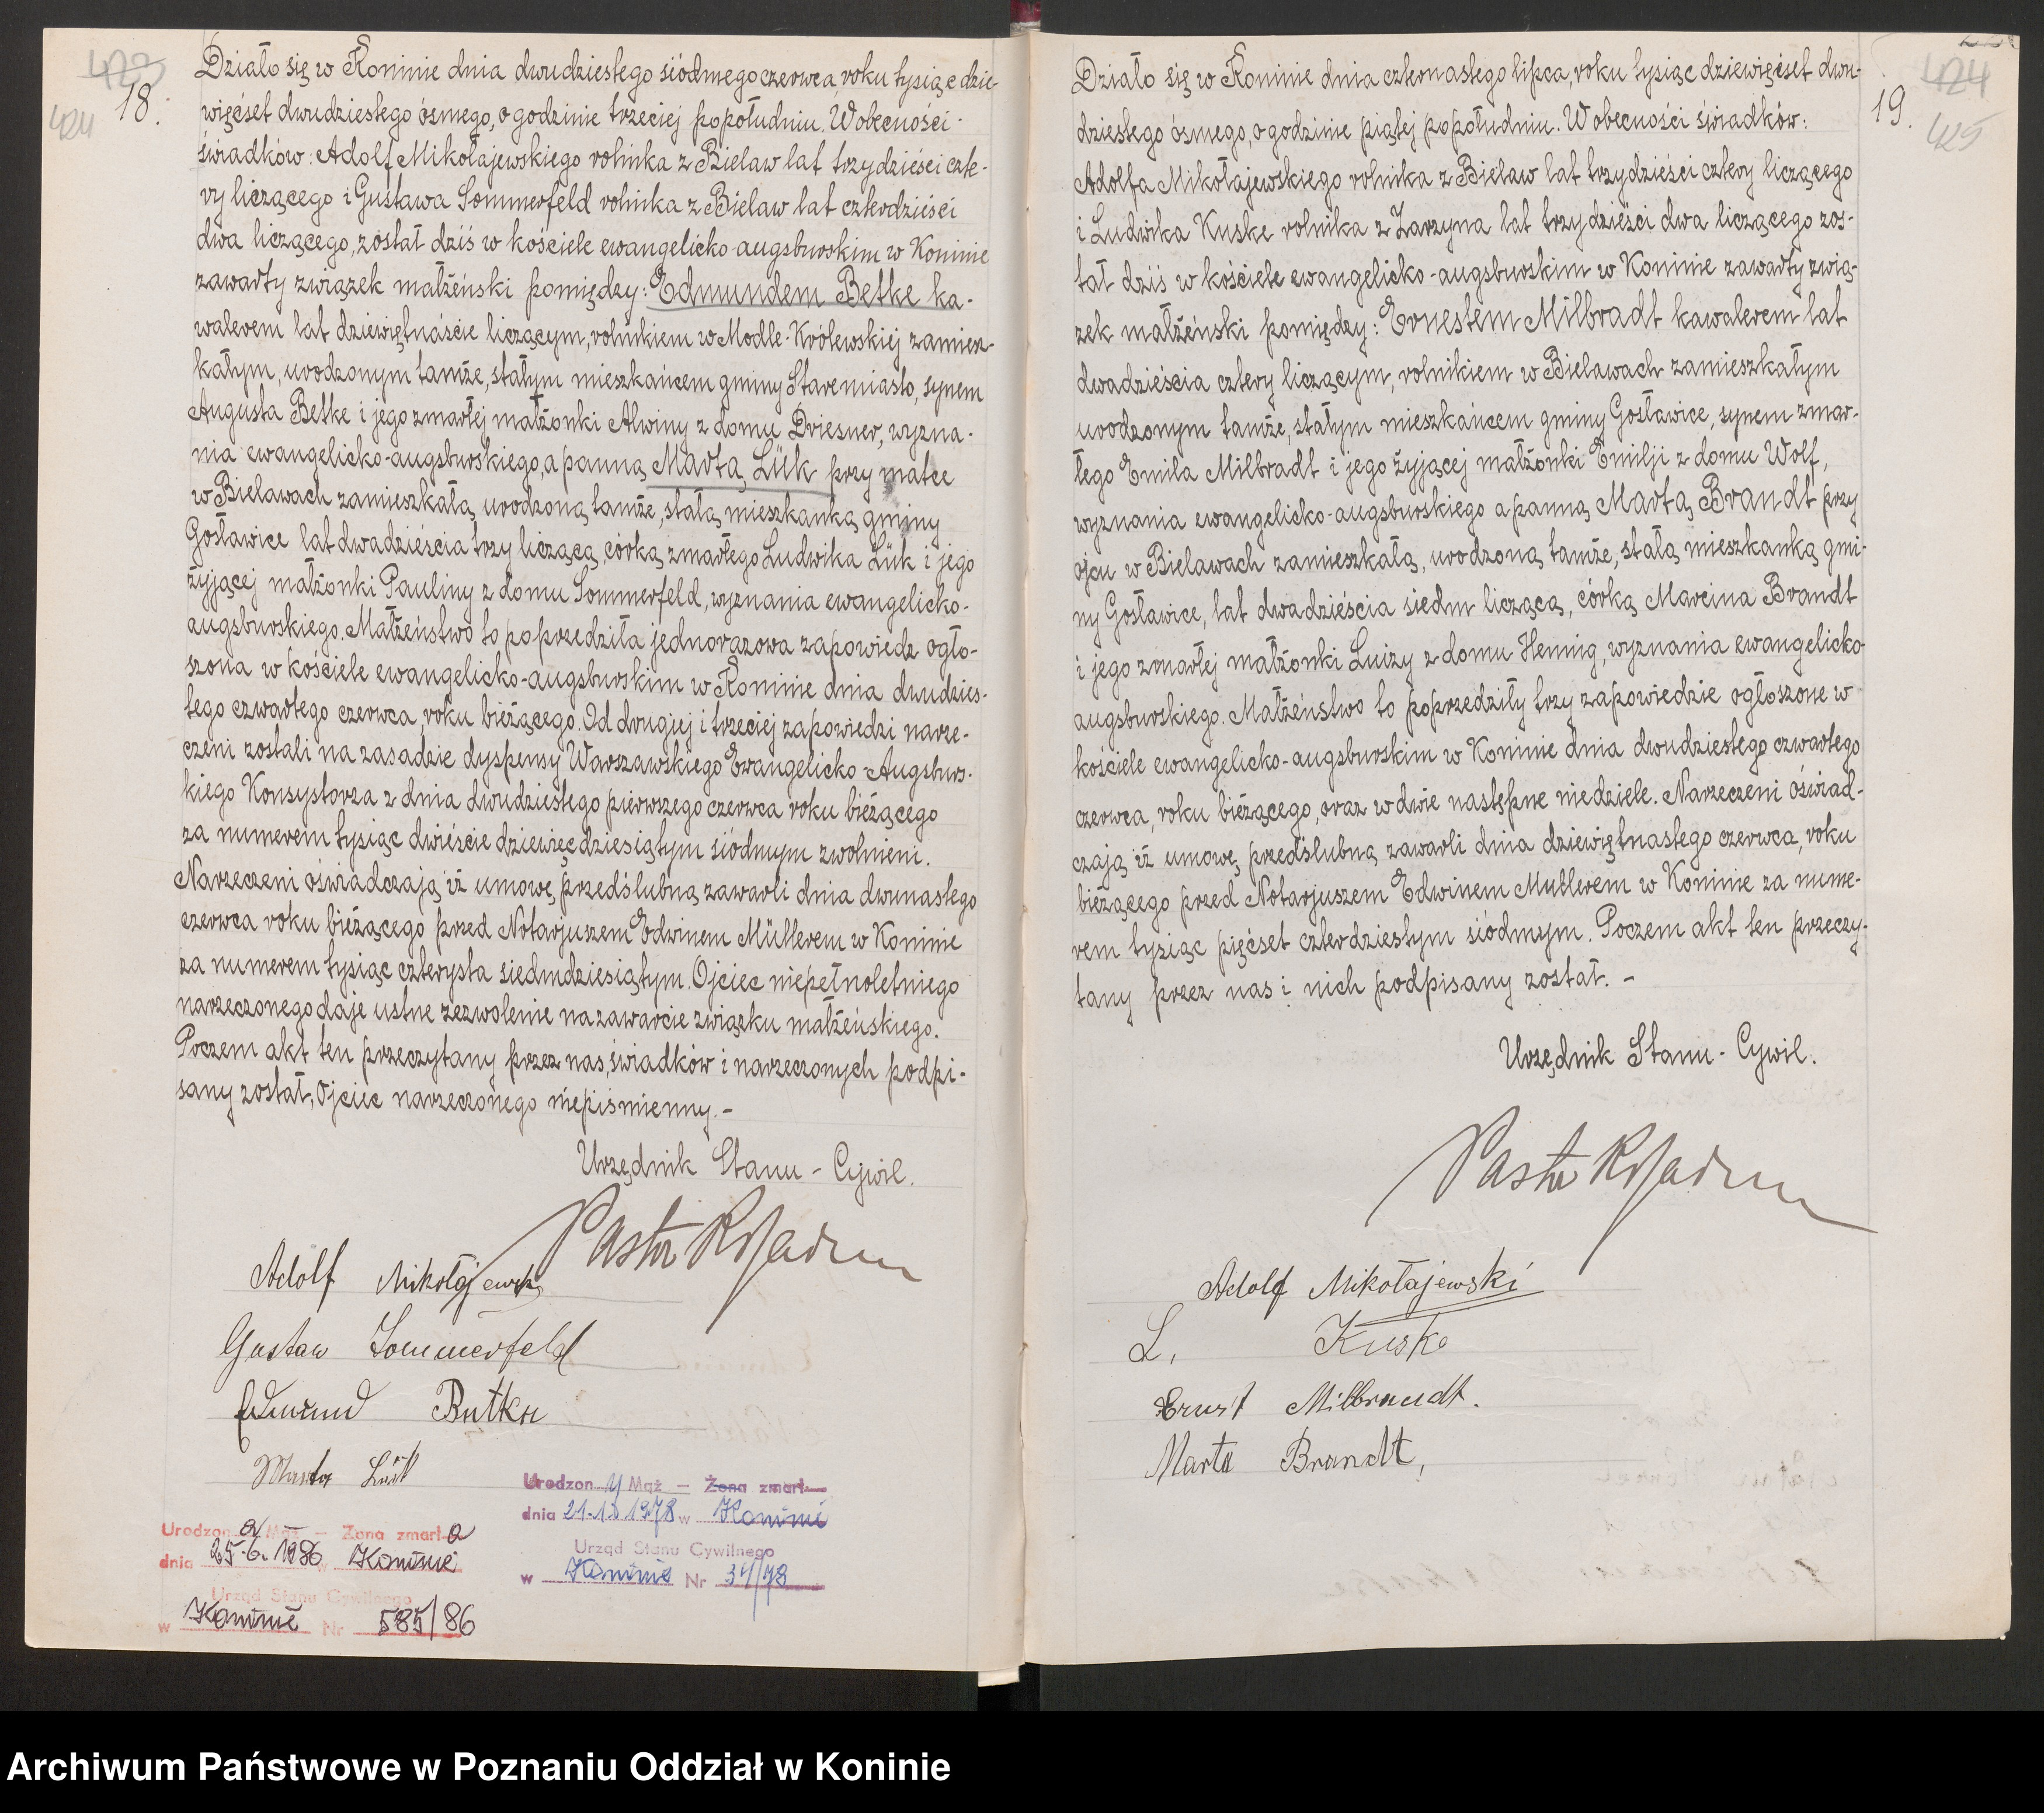 423
18.
424
Działo się w Koninie dnia dwudziestego siódmego czerwca, roku tysiąc dzie-
więćset dwudziestego ósmego, o godzinie trzeciej popołudniu. W obecności
świadków: Adolf Mikołajewskiego rolnika z Bielaw lat trzydzieści czte-
ry liczącego i Gustawa Sommerfeld rolnika z Bielaw lat czterdzieści
dwa liczącego, został dziś w kościele ewangelicko augsburskim w Koninie
zawarty związek małżeński pomiędzy: Edmundem Betke ka-
walerem lat dziewiętnaście liczącym, rolnikiem w Modle-Królewskiej zamiesz-
kałym, urodzonym tamże, stałym mieszkańcem gminy Staremiasto, synem
Augusta Betke i jego zmarłej małżonki Alwiny z domu Driesner, wyzna-
nia ewangelicko-augsburskiego, a panną Martą Lük przy matce
w Bielawach zamieszkałą, urodzoną tamże, stałą mieszkanką gminy
Gosławice lat dwadzieścia trzy liczącą, córką zmarłego Ludwika Lük i jego
żyjącej małżonki Pauliny z domu Sommerfeld, wyznania ewangelicko-
augsburskiego. Małżeństwo to poprzedziła jednorazowa zapowiedz ogło-
szona w kościele ewangelicko-augsburskim w Koninie dnia dwudzies-
tego czwartego czerwca, roku bieżącego. Od drugiej i trzeciej zapowiedzi narze-
czeni zostali na zasadzie dyspensy Warszawskiego Ewangelicko-Augsburs-
kiego Konsystorza z dnia dwudziestego pierwszego czerwca roku bieżącego
za numerem tysiąc dwieście dziewięćdziesiątym siódmym zwolnieni.
Narzeczeni oświadczają iż umowę przedślubną zawarli dnia dwunastego
czerwca roku bieżącego przed Notarjuszem Edwinem Müllerem w Koninie
za numerem tysiąc czterysta siedmdziesiątym. Ojciec niepełnoletniego
narzeczonego daje ustne zezwolenie na zawarcie związku małżeńskiego.
Poczem akt ten przeczytany przez nas, świadków i narzeczonych podpi-
sany został, Ojciec narzeczonego niepiśmienny.-
Urzędnik Stanu - Cywil.
Pastor
Adolf Mikołajewski
Gustaw Sommerfeld
Edmund Betke
Marta Lük
Urodzony Mąż - Żona zmarł
dnia 21.1. 1978 w Koninie
Urząd Stanu Cywilnego
w Koninie Nr 34/78
Urodzona Mąż - Żona zmarła
dnia 25.6.1986 w Koninie
Urząd Stanu Cywilnego
w Koninie Nr 585/86
424
19.
425
Działo się w Koninie dnia czternastego lipca, roku tysiąc dziewięćset dwu-
dziestego ósmego, o godzinie piątej popołudniu. W obecności świadków:
Adolfa Mikołajewskiego rolnika z Bielaw lat trzydzieści cztery liczącego
i Ludwika Kuske rolnika z Zarzyna lat trzydzieści dwa liczącego zos-
tał dziś w kościele ewangelicko-augsburskim w Koninie zawarty zwią-
zek małżeński pomiędzy: Ernestem Milbradt kawalerem lat
dwadzieścia cztery liczącym, rolnikiem w Bielawach zamieszkałym
urodzonym tamże, stałym mieszkańcem gminy Gosławice, synem zmar-
łego Emila Milbradt i jego żyjącej małżonki Emilji z domu Wolf,
wyznania ewangelicko-augsburskiego a panną Martą Brandt przy
ojcu w Bielawach zamieszkałą, urodzoną tamże, stałą mieszkanką gmi-
ny Gosławice, lat dwadzieścia siedm liczącą, córką Marcina Brandt
i jego zmarłej małżonki Luizy z domu Hennig, wyznania ewangelicko-
augsburskiego. Małżeństwo to poprzedziły trzy zapowiedzie ogłoszone w
kościele ewangelicko-augsburskim w Koninie dnia dwudziestego czwartego
czerwca, roku bieżącego, oraz w dwie następne niedziele. Narzeczeni oświad-
czają iż umowę przedślubną zawarli dnia dziewiętnastego czerwca, roku
bieżącego przed Notarjuszem Edwinem Müllerem w Koninie za nume-
rem tysiąc pięćset czterdziestym siódmym. Poczem akt ten przeczy-
tany przez nas i nich podpisany został. -
Urzędnik Stanu - Cywil.
Pastor
Adolf Mikołajewski
L. Kuske
Ernst Milbrandt.
Marta Brandt,
Archiwum Państwowe w Poznaniu Oddział w Koninie